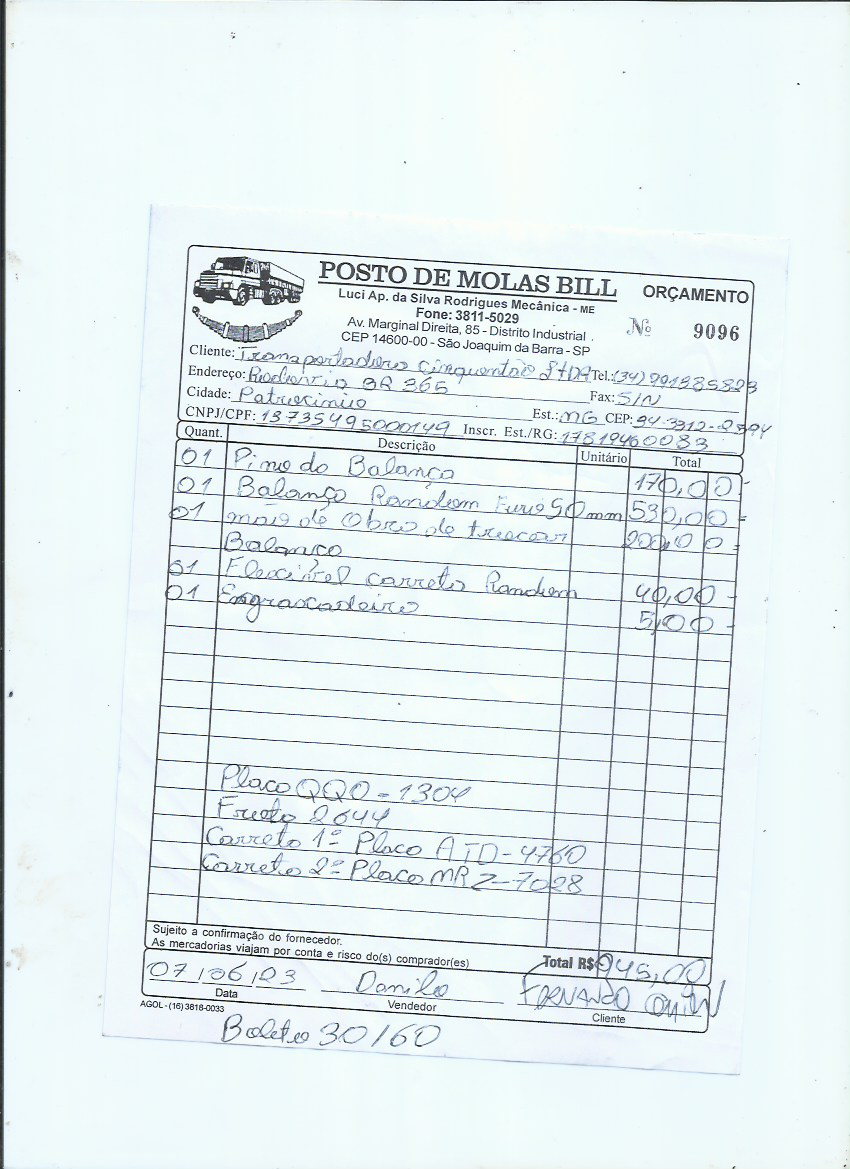 POSTO DE MOLAS BILL
ORÇAMENTO
Luci Ap. da Silva Rodrigues Mecânica - ME
Fone: 3811-5029
Av. Marginal Direita, 85 - Distrito Industrial
CEP 14600-00 - São Joaquim da Barra - SP
Nº 9096
Cliente: Transportadora Cinquentão LtDA Tel.:
Endereço: Rodovia BR 365 Fax: S/N
Cidade: Patrocinio Est.: MG CEP:
CNPJ/CPF: 13735495000149 Inscr. Est./RG: 17819460083
Quant. Descrição Unitário Total
01 Pino do Balança 170,00
01 Balanço Random Furo 50mm 530,00
01 mão de Obra de trocar 200,00
Balanço
01 Flexível carreta Random 40,00
01 Engraxadeira 5,00
Placa QQO - 1304
Frota 2644
Carreta 1ª Placa ATD-4760
Carreta 2ª Placa MRZ-7028
Sujeito a confirmação do fornecedor.
As mercadorias viajam por conta e risco do(s) comprador(es)
Total R$ 945,00
07/06/23 Danilo FERNANDO
Data Vendedor Cliente
AGOL - (16) 3818-0033
Boleto 30/60